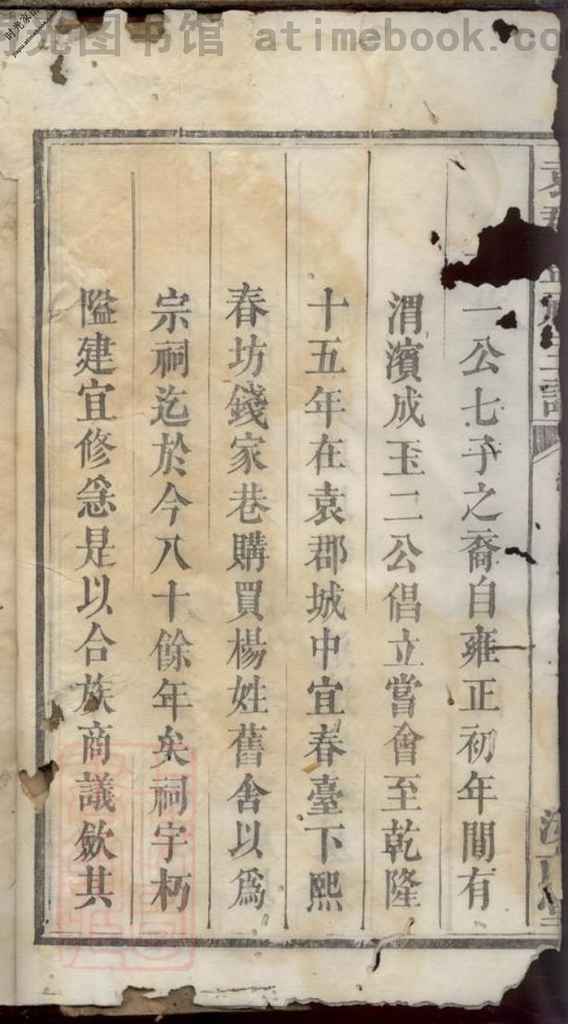 时光图书馆 atimebook.co
一公七子之裔自雍正初年間有
渭濱成玉二公倡立嘗會至乾隆
十五年在袁郡城中宜春臺下熙
春坊錢家巷購買楊姓舊舍以爲
宗祠迄於今八十餘年矣祠宇朽
隘建宜修急是以合族商議歛其